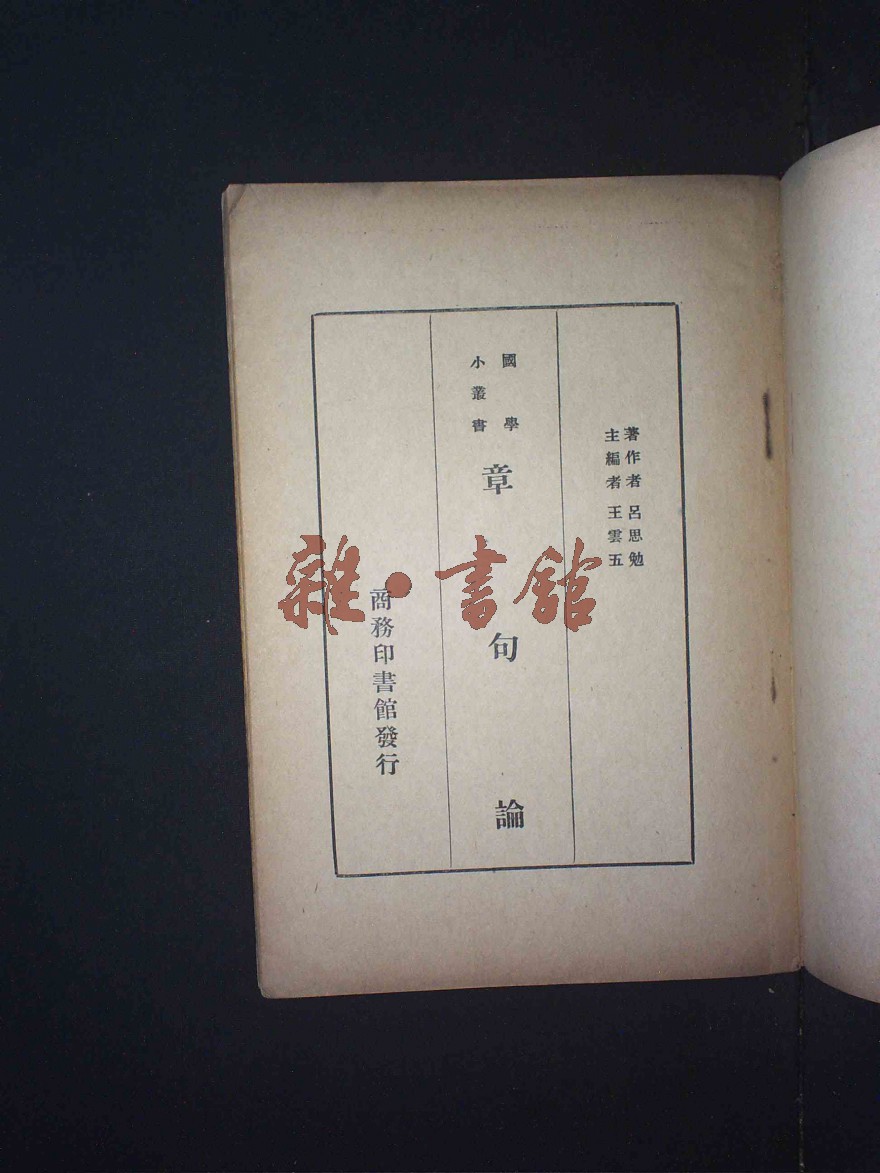 著作者 呂思勉
主編者 王雲五
國學
小叢書
章句論
商務印書館發行
雜·書館